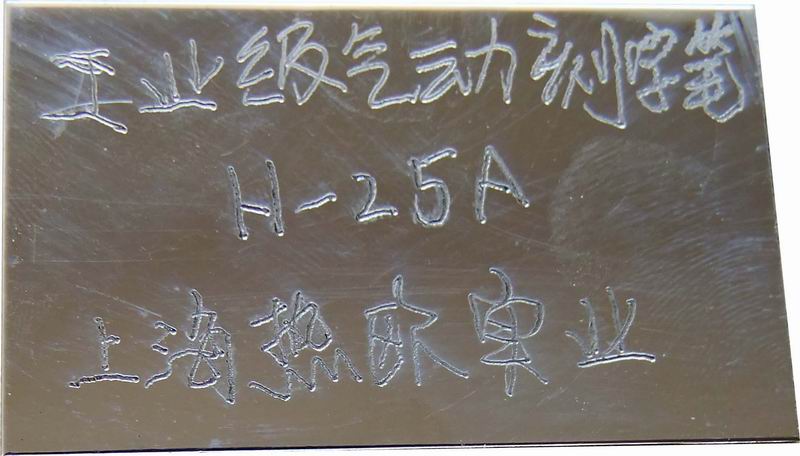 工业级气动刻字笔
H-25A
上海热欧实业